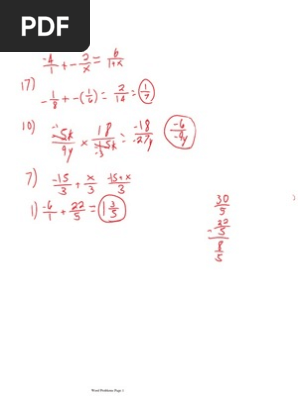 PDF
-4/1 + - 2/x = 6/1+x
17)
-1/8 + -(1/6) = 2/14 = 1/7
10) -5x/9y × 18/-15x = -18/-27y -6/-9y
7) -15/3 + x/3 -15+x/3
1) -6/1 + 22/5 = 1 3/5
30/5
- 22/5
8/5
Word Problems Page 1